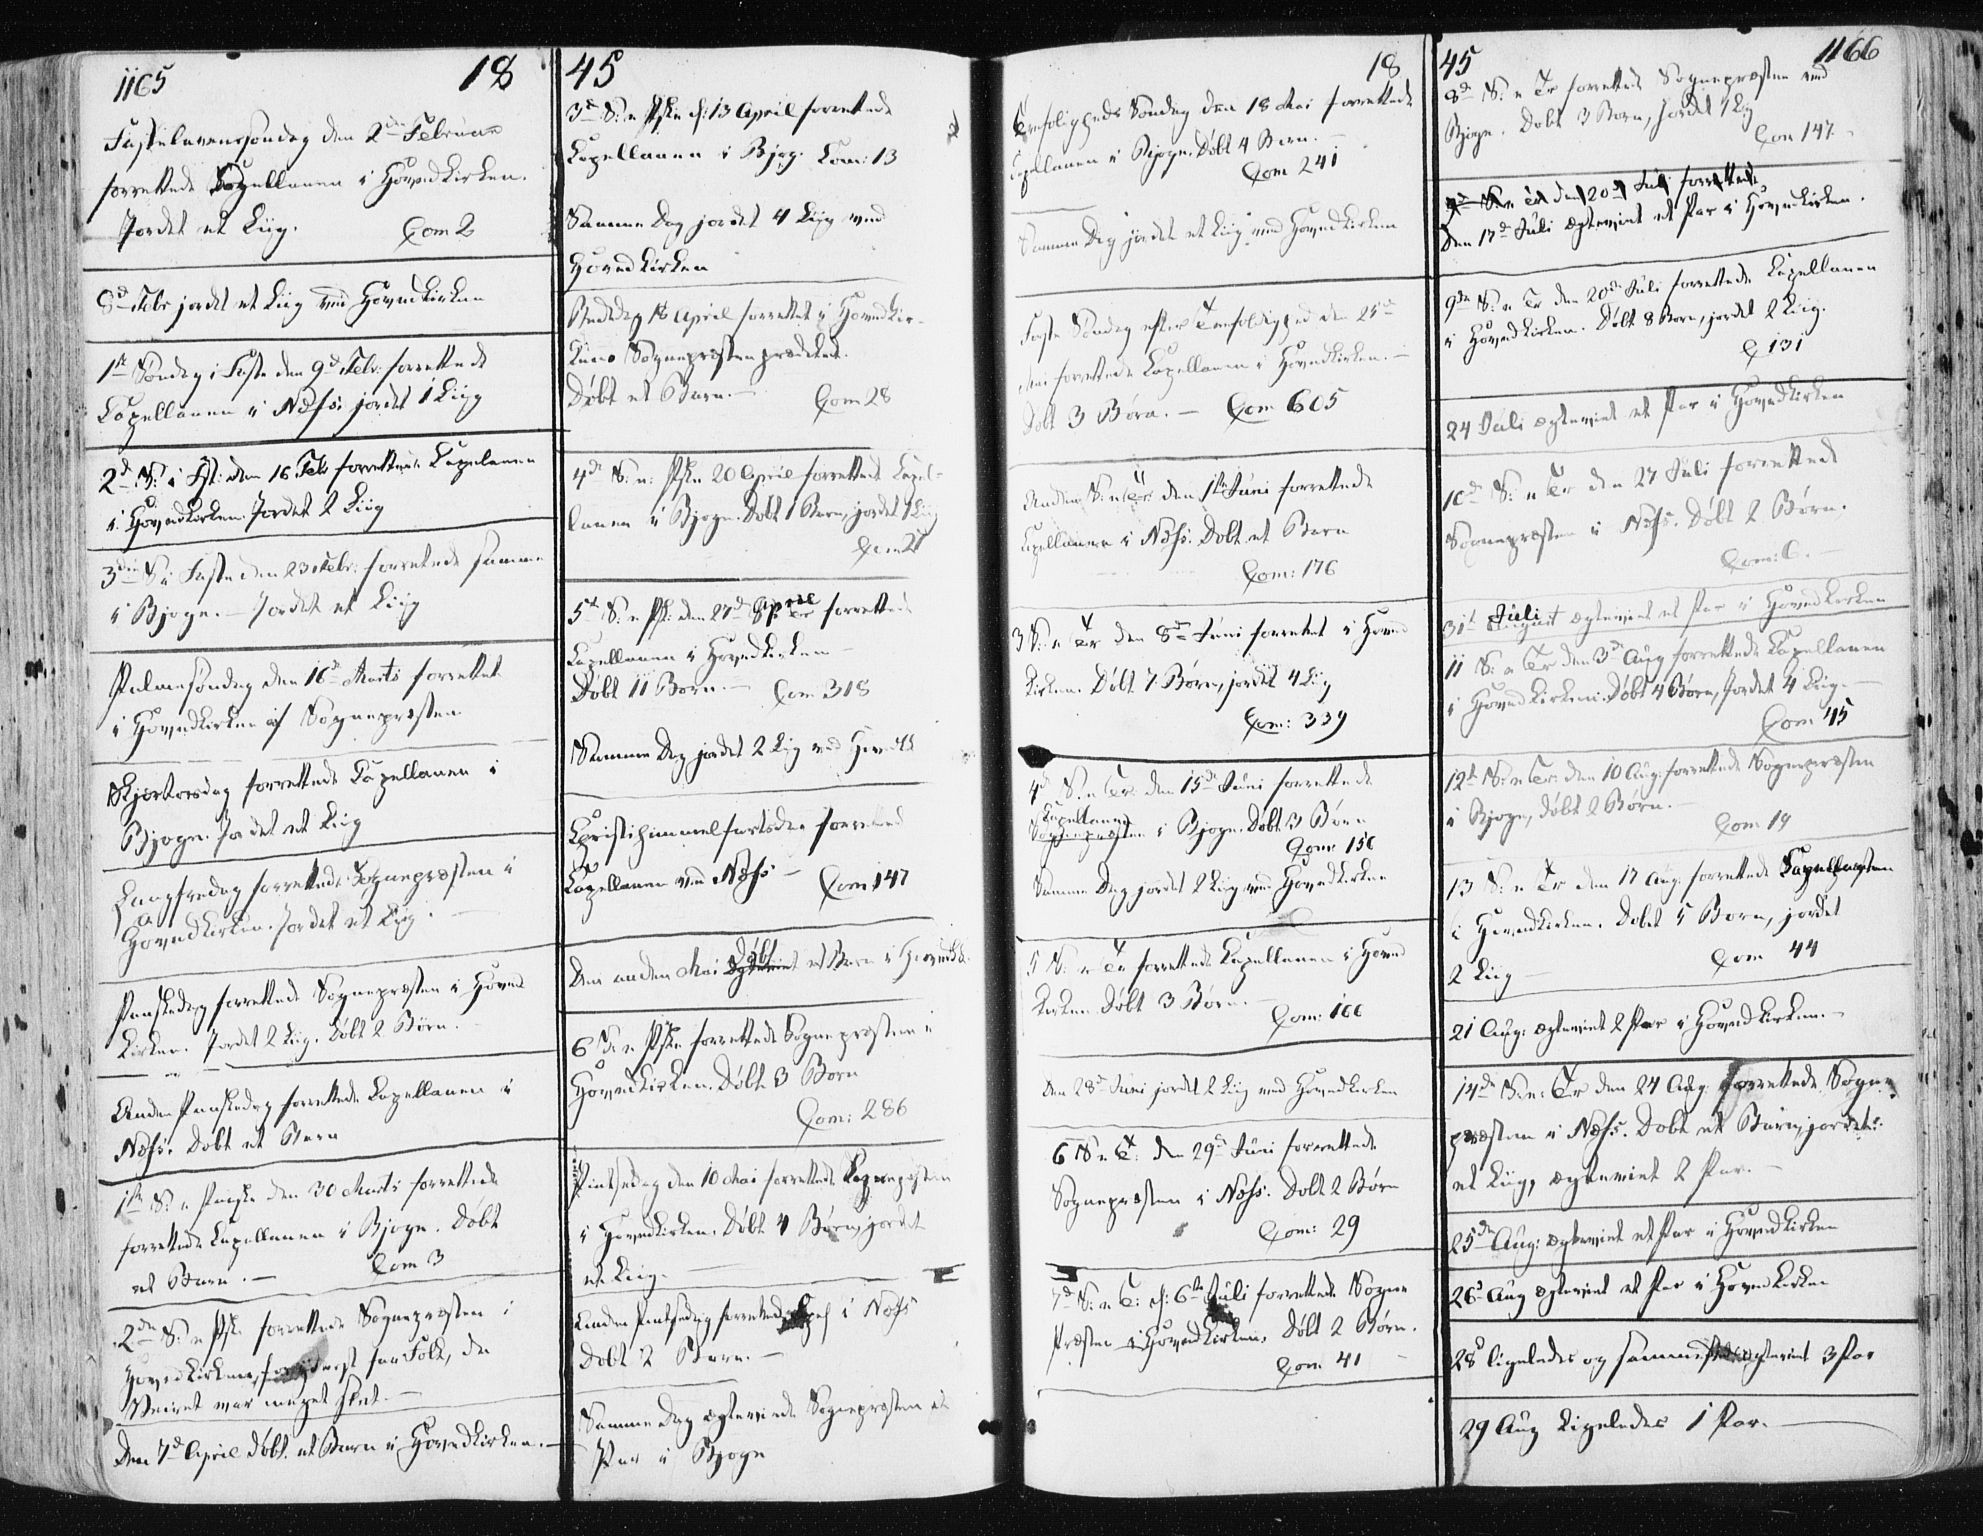 1165
18
Fastelavenssøndag den 2den Februar
forrettede Capellanen i Hovedkirken.
Jordet et Liig. Com 2
8de Febr jordet et Liig ved Hovedkirken
1ste Søndag i Faste den 9de Febr: forrettede
Capellanen i Næss. jordet 1 Liig
2d S: i Fst: den 16 Feb forrettede Capelanen
i Hovedkirken. Jordet 2 Liig
3die S i Faste den 23 Febr: forrettede samme
i Bjogn. — Jordet et Liig
Palmesøndag den 16de Marts forrettet
i Hovedkirken af Sognepræsten
Skjærtorsdag forrettede Capellanen i
Bjogn. Jordet et Liig
Langfredag forrettede Sognepræsten i
Hovedkirken. Jordet et Liig. —
Paaskedag forrettede Sognepræsten i Hoved
Kirken. Jordet 2 Liig. Døbt 2 Børn.
Anden Paaskedag forrettede Capellanen i
Næss. Døbt et Barn
1ste S: e Paaske den 30 Marts forrettede
forrettede Capellanen i Bjogn. Døbt
et Barn. — Com 3
2den S: e Psk: forrettede Sognepræsten i
Hovedkirken, faa Folk, da
Veiret var meget slet. —
Den 7de April døbt et Barn i Hovedkirken. —
45
3de S: e Pske d: 13 April forrettede
Capellanen i Bjog. Com: 13
Samme Dag jordet 4 Liig ved
Hovedkirken
Bededag 18 April forrettet i Hovedkir-
Sognepræsten prædiked.
Døbt et Barn. — Com 28
4de S: e: Pske 20 April forrettede Capel-
lanen i Bjogn. Døbt 1 Barn, jordet 1 Liig
Com 21
5te S: e Psk: den 27de April forrettede
Capellanen i Hovedkirken —
Døbt 11 Børn. — Com 318
Samme Dag jordet 2 Liig ved
Christihimmelfartsdag forretted
Capellanen ved Næss — Com 147
Den anden Mai Døbt et Barn i
6 S: e Pske forrettede Sognepræsten i
Hovedkirken. Døbt 3 Børn
Com: 286
Pintsedag den 10 Mai forrettede Sognepræsten
i Hovedkirken. Døbt 4 Børn, jordet
et Liig. —
Anden Pintsedag forrettede Capel i Næss
Døbt 2 Børn. —
Samme Dag ægteviede Sognepræsten et
Par i Bjogn
18
Trefoligheds Søndag den 18 Mai forrettede
Capellanen i Bjogn. Døbt 4 Børn. —
Com 241
Samme Dag jordet et Liig ved Hovedkirken
Første Søndag efter Trefoldighed den 25de
Mai forrettede Capellanen i Hovedkirken. —
Døbt 3 Børn. — Com 605
Anden S: e Tr: den 1ste Juni forrettede
Capellanen i Næss. Døbt et Barn
Com: 176
3 S: e Tr den 8de Juni forrettet i Hoved
Kirken. Døbt 7 Børn, jordet 4 Liig
Com: 339
4de S. e Tr: den 15de Juni forrettede
Capellanen
Sognepræsten i Bjogn. Døbt 3 Børn
Com: 150
Samme Dag jordet 2 Liig ved Hovedkirken
5 S. e Tr forrettede Capellanen i Hoved
Kirken. Døbt 3 Børn. —
Com: 100
Den 28de Juni jordet 2 Liig ved Hovedkirken
6 S e T: den 29de Juni forrettede
Sognepræsten i Næss. Døbt 2 Børn
Com: 29
7de S: e T: d: 6te Juli forrettede Sogne
Præsten i Hovedkirken. Døbt 2 Børn.
Com 41 —
45
1166
8de S: e Tr forrettede Sognepræsten ved
Bjogn. Døbt 3 Børn, Jordet 1 Liig
Com 147 —
9de S: e Tr den 20de Juli forrettede
Den 17de Juli ægteviet et Par i Hovedkirken.
9de S: e Tr den 20de Juli forrettede Capellanen
i Hovedkirken. Døbt 8 Børn, jordet 2 Liig.
C 131
24 Juli ægteviet et Par i Hovedkirken
10de S: e Tr den 27 Juli forrettede
Sognepræsten i Næss. Døbt 2 Børn.
Com: 6. —
31te Juli ægteviet et Par i Hovedkirken
11 S: e Tr den 3de Aug forrettede Capellanen
i Hovedkirken: Døbt 4 Børn, Jordet 4 Liig. —
Com 45
12te S: e Tr: den 10 Aug: forrettede Sognepræsten
i Bjogn, døbt 2 Børn. —
Com 19
13 S: e Tr den 17 Aug: forrettede
i Hovedkirken. Døbt 5 Børn, jordet
2 Liig — Com 44
21 Aug: ægteviet 2 Par i Hovedkirken. —
14de S: e: Tr den 24 Aug: forrettede Sogne
præsten i Næss. Døbt et Barn, jordet
et Liig, ægteviet 2 Par. —
25de Aug: ægteviet et Par i Hovedkirken
26de Aug ægteviet et Par i Hovedkirken
28de ligeledes og sammesteds ægteviet 3 Par
29 Aug Ligeledes 1 Par. —